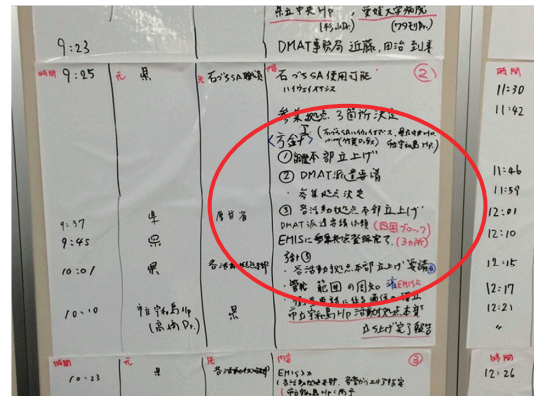 県立中央Hp、愛媛大学病院
(杉山Dr.)
9:23 DMAT事務局 近藤、田治 到着
時間 元 先 内容 ②
9:25 県 石づちSA 石づちSA使用可能
ハイウェイオアシス
参集拠点 3箇所決定
<方針>
①本部立上げ
②DMAT派遣要請
・参集拠点決定
③各活動拠点本部立上げ
9:37 県 厚労省 DMAT派遣要請依頼 (四国ブロック)
9:45 県 EMISに参集拠点登録完了 (3ヵ所)
10:01 県 各活動拠点本部
・各活動拠点本部立上げ要請
・管轄範囲の周知 EMIS
10:10 市立宇和島Hp 県 市立宇和島Hp 活動拠点本部
立ち上げ完了報告
時間 元 先 内容 ③
10:23 県 各活動拠点本部 EMIS
時間
11:30
11:42
11:46
11:59
12:01
12:10
12:15
12:17
12:21
〃
時間
12:26